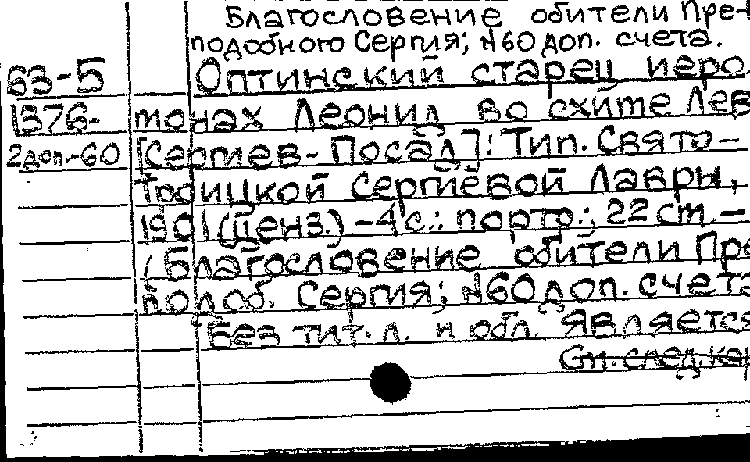 Благословение обители Пре-
подобного Сергия; №60 доп. счета.
63-5 Оптинский старец иеро
1376- монах Леонид во схиме Лев
2доп.-60 [Сергиев-Посад]: Тип. Свято-
Троицкой Сергиевой Лавры,
1901 (ценз.) -4 с.: портр.; 22 см.-
/Благословение обители Пре
подоб. Сергия; №60 доп. счета
Без тит. л. и обл. Является
См. след. кар